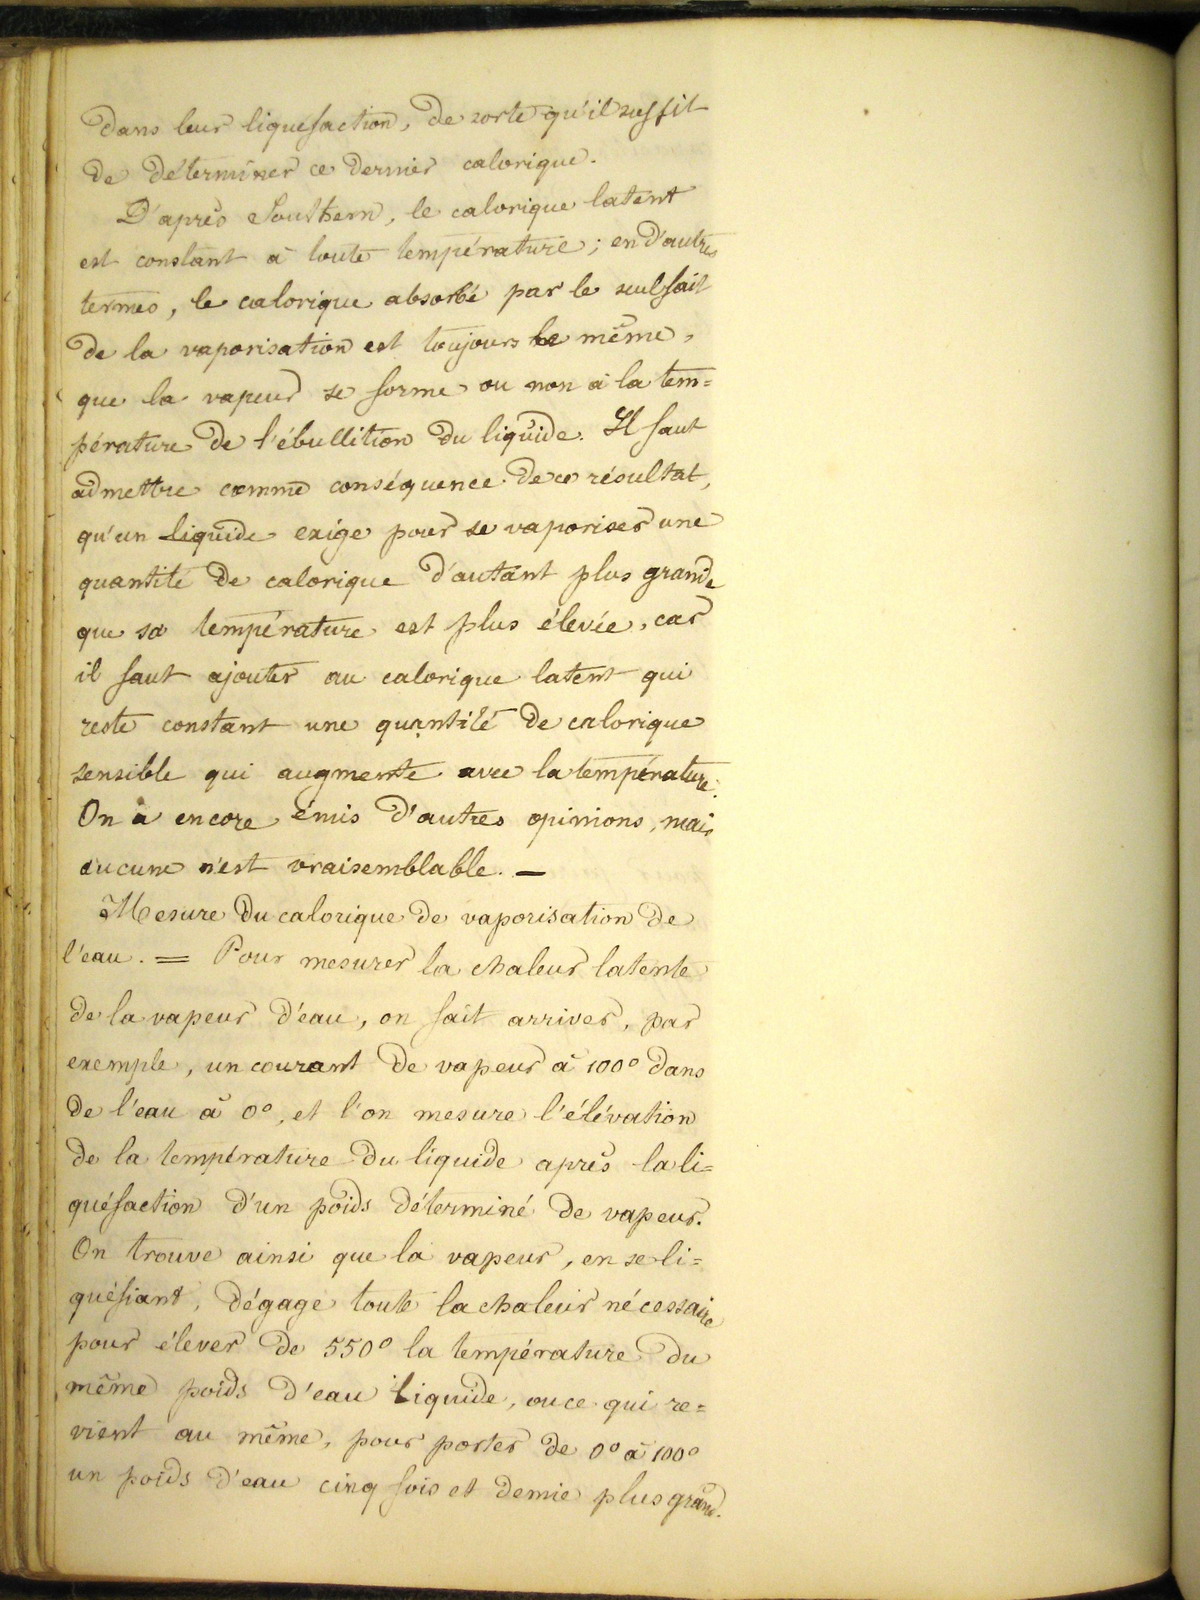 dans leur liquefaction, de sorte qu'il suffit
de déterminer ce dernier calorique.
D'après Southern, le calorique latent
est constant à toute température ; en d'autres
termes, le calorique absorbé par le seul fait
de la vaporisation est toujours le même,
que la vapeur se forme ou non à la tem=
pérature de l'ébullition du liquide. Il faut
admettre comme conséquence de ce résultat,
qu'un liquide exige pour se vaporiser une
quantité de calorique d'autant plus grande
que sa température est plus élevée, car
il faut ajouter au calorique latent qui
reste constant une quantité de calorique
sensible qui augmente avec la température.
On a encore émis d'autres opinions, mais
aucune n'est vraisemblable. —
Mesure du calorique de vaporisation de
l'eau. = Pour mesurer la chaleur latente
de la vapeur d'eau, on fait arriver, par
exemple, un courant de vapeur à 100° dans
de l'eau à 0°, et l'on mesure l'élévation
de la température du liquide après la li=
quéfaction d'un poids déterminé de vapeur.
On trouve ainsi que la vapeur, en se li=
quéfiant, dégage toute la chaleur nécessaire
pour élever de 550° la température du
même poids d'eau liquide, ou ce qui re=
vient au même, pour porter de 0° à 100°
un poids d'eau cinq fois et demie plus grand.